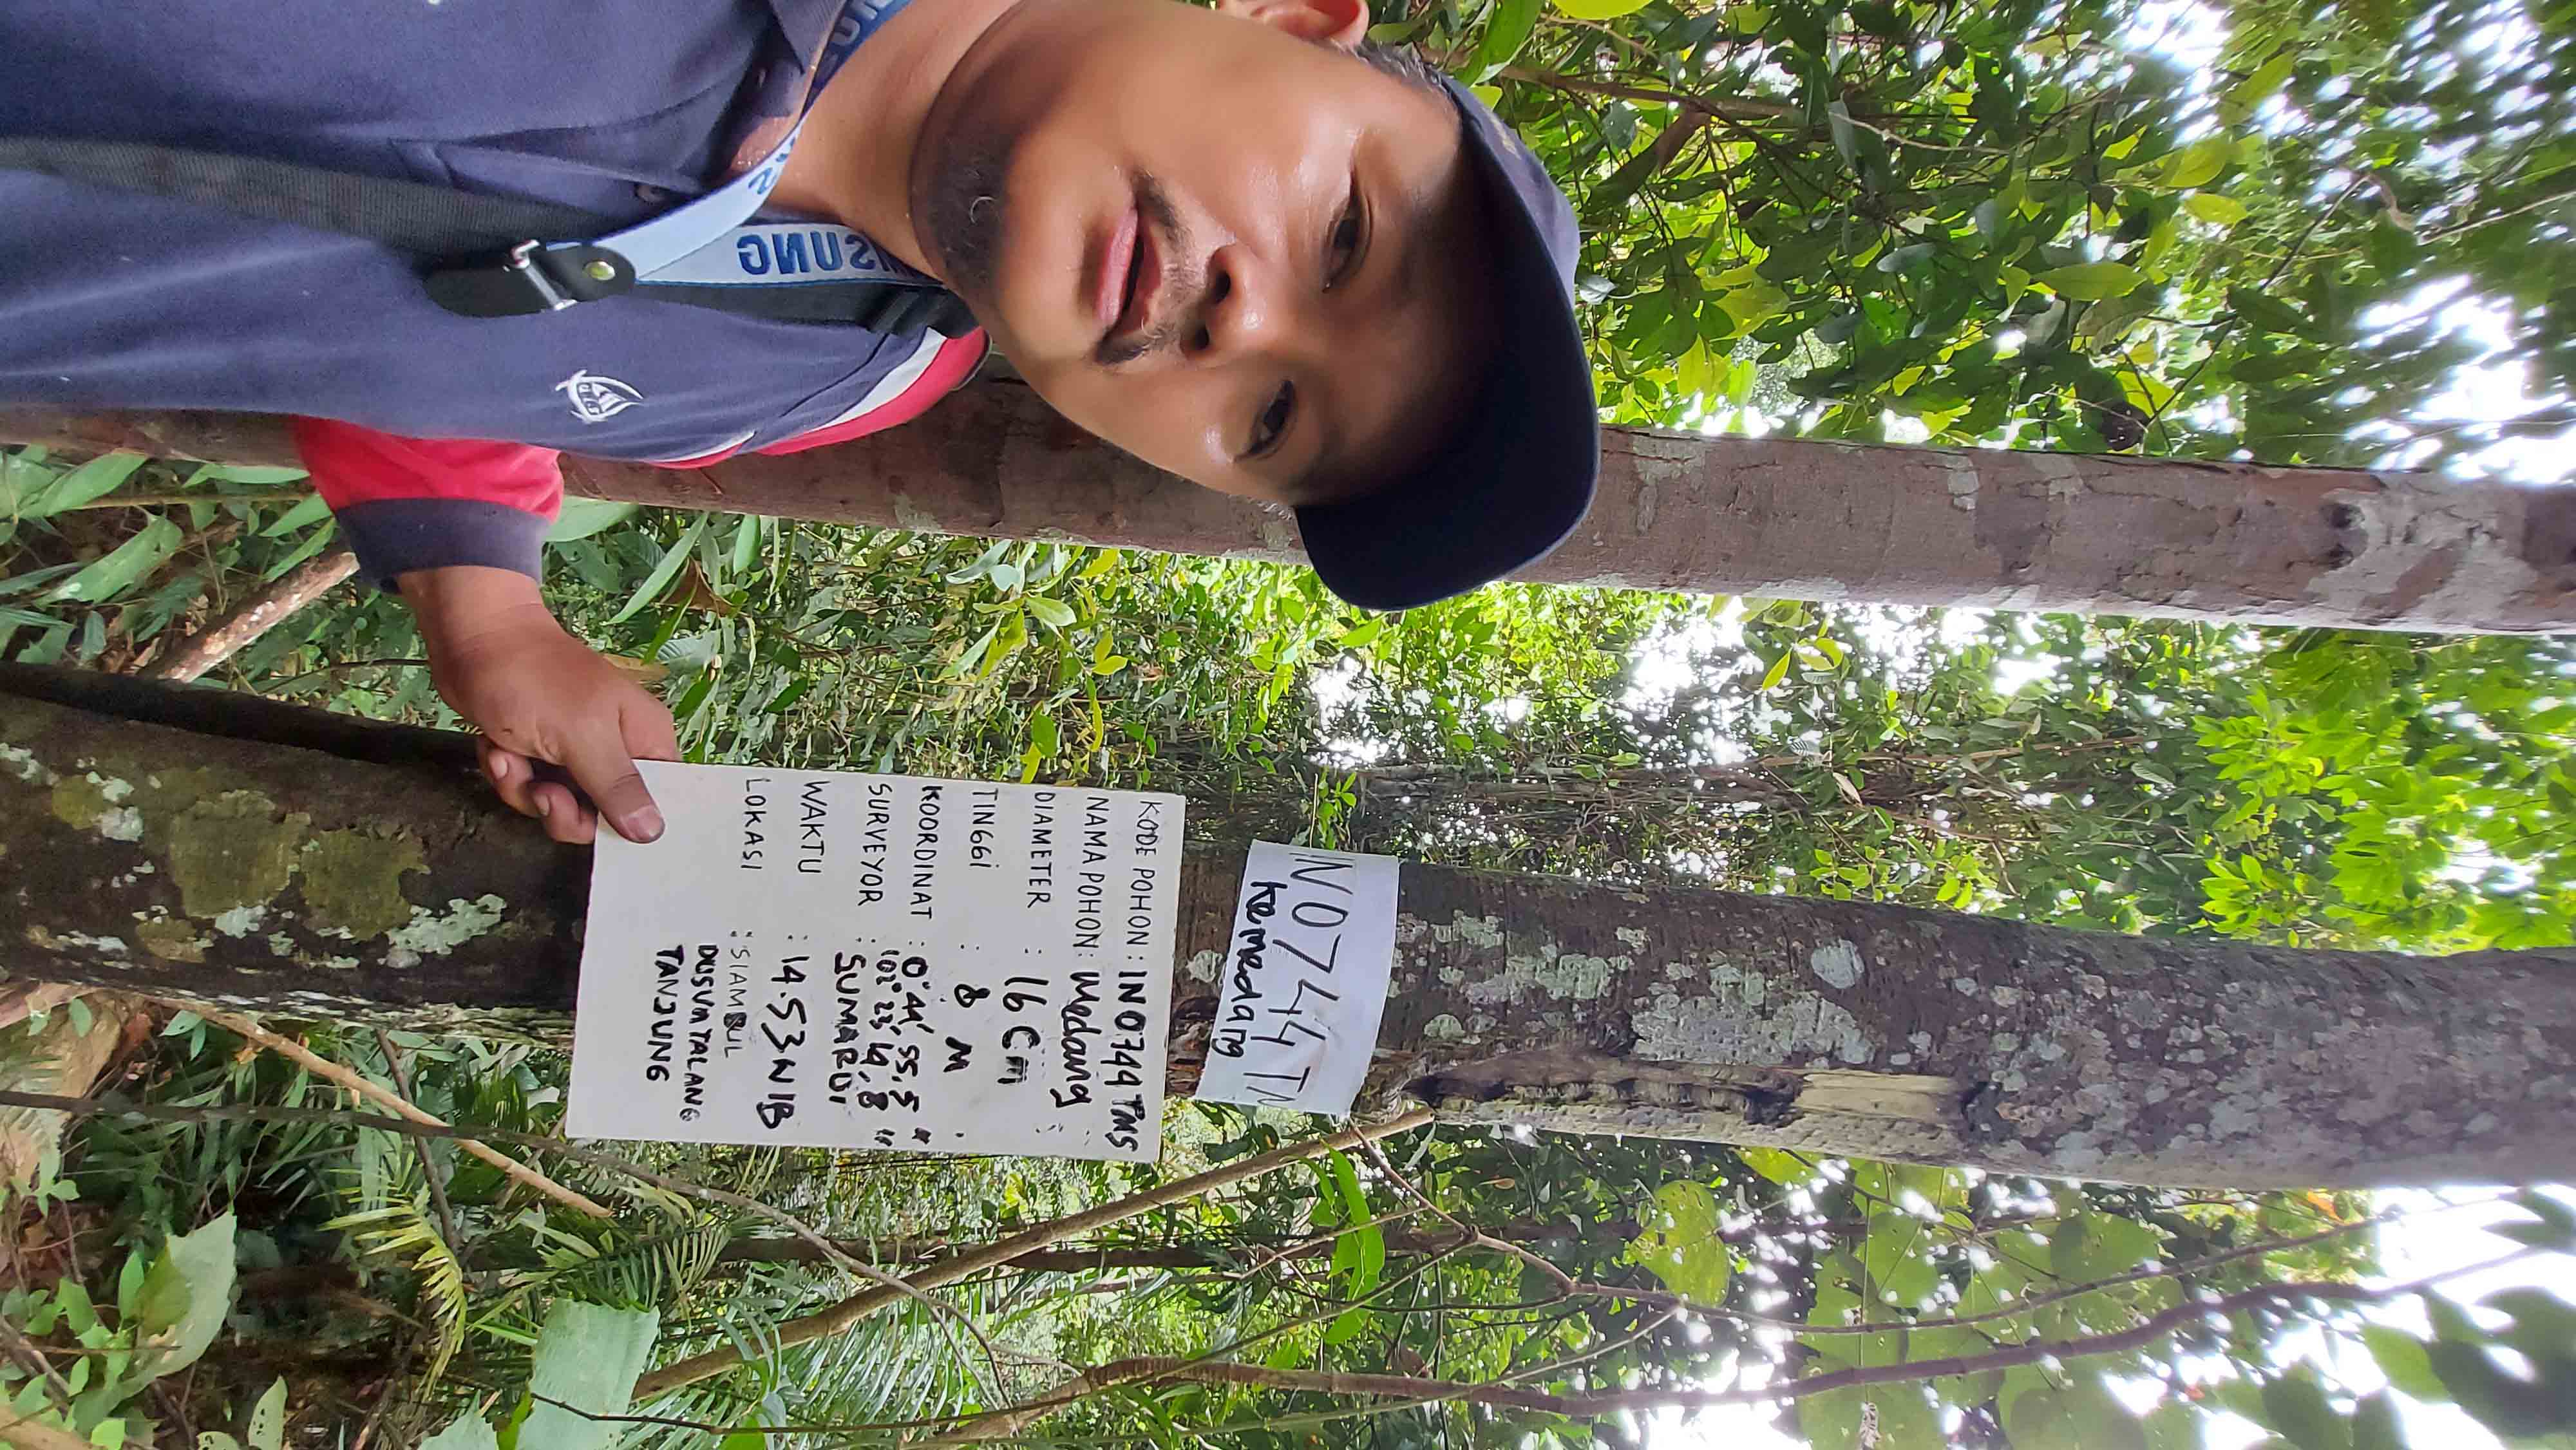 KODE POHON : IN0744TMS
NAMA POHON : Medang
DIAMETER : 16 Cm
TINGGI : 8 M
KOORDINAT : 0°44'55.5"
102°23'19,8"
SURVEYOR : SUMARDI
WAKTU : 14.53 WIB
LOKASI : SIAMBUL
DUSUN TALANG
TANJUNG
IN0744 T
Kemedang
SAMSUNG